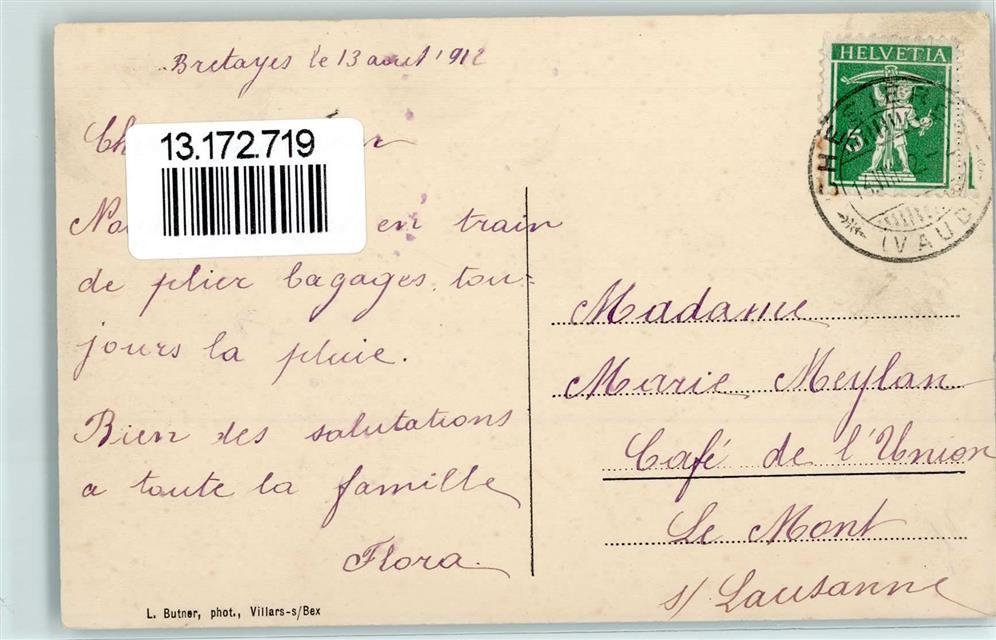 Bretayes le 13 aout 1912
13.172.719
en train
de plier bagages, tou-
jours la pluie.
Bien des salutations
a toute la famille
Flora.
L. Butner, phot., Villars-s/Bex
HELVETIA
5
(VAUD)
Madame
Marie Meylan
Café de l'Union
Le Mont
s/ Lausanne